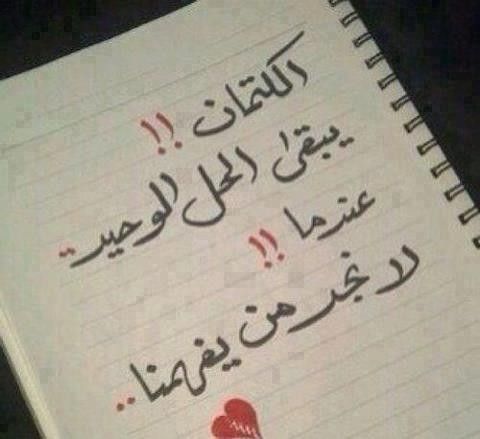 الكتمان !!
يبقى الحل الوحيد ..
عندما !!
لا نجد من يفهمنا ..